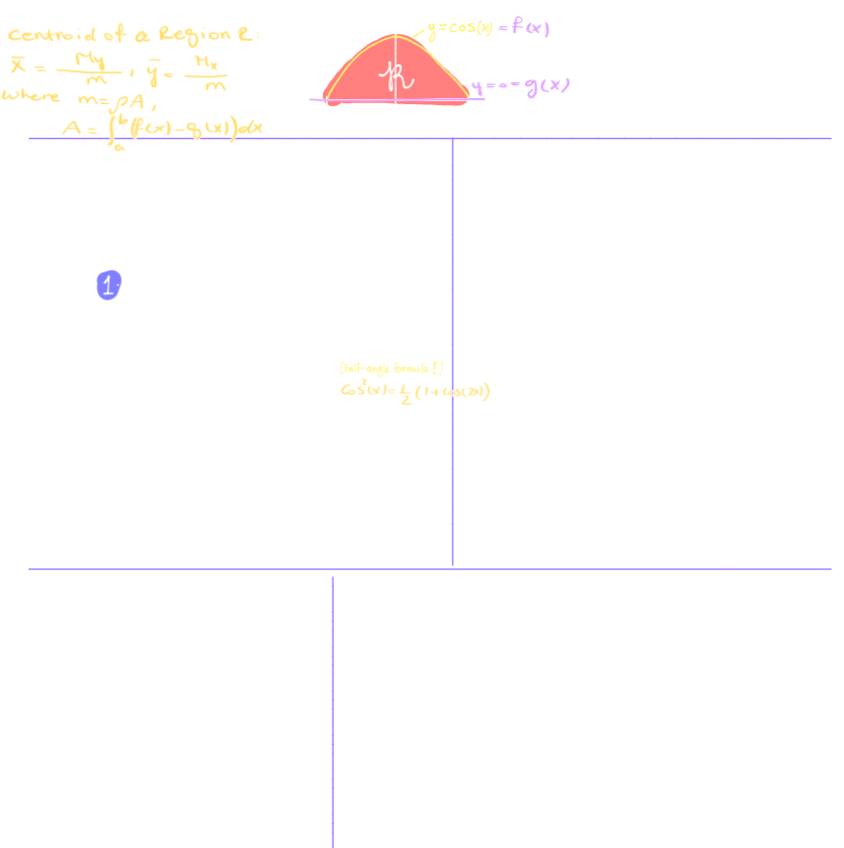 Centroid of a Region R:
x̄ = My/m , ȳ = Mx/m
where m=ρA,
A = ∫_a^b (f(x)-g(x))dx
y=cos(x) = f(x)
R
y=0=g(x)
1.
(half-angle formula!)
cos²(x)=1/2(1+cos(2x))